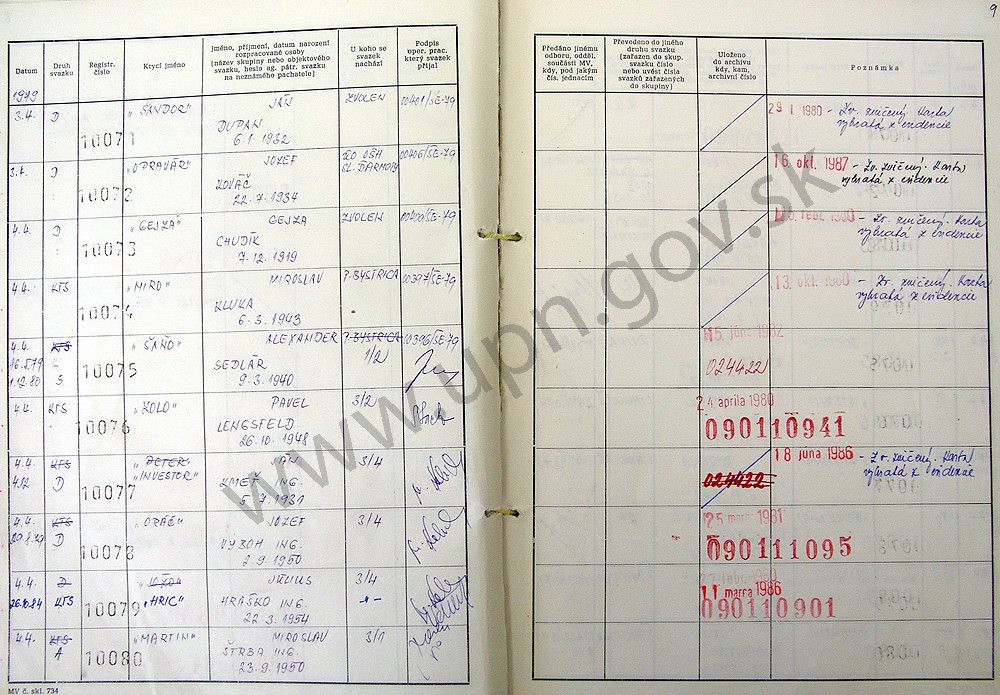 9
Datum
Druh svazku
Registr. číslo
Krycí jméno
Jméno, příjmení, datum narození
rozpracované osoby
(název skupiny nebo objektového
svazku, heslo ag. pátr. svazku
na neznámého pachatele)
U koho se
svazek
nachází
Podpis
oper. prac.
který svazek
přijal
Předáno jinému
odboru, odděl.
součásti MV,
kdy, pod jakým
čís. jednacím
Převedeno do jiného
druhu svazku
(zařazen do skup.
svazku číslo
nebo uvést čísla
svazků zařazených
do skupiny)
Uloženo
do archivu
kdy, kam,
archivní číslo
Poznámka
1979
3.4. D 10071 "ŠANDOR" JÁN ZVOLEN 00401/ŠE-79
DUPAN
6.1.1932
29 1 1980 - Zv. zničený Karta
vybratá z evidencie
3.4. D 10072 "OPRAVÁR" JOZEF 00406/ŠE-79
KOVÁČ
22.7.1934
16. okt. 1987 - Zv. zničený. Karta
vybratá z evidencie
4.4. D 10073 "GEJZA" GEJZA ZVOLEN 00400/ŠE-79
CHUDÍK
7.12.1919
febr. 1980 - Zv. zničený. Karta
vybratá z evidencie
4.4. KTS 10074 "MIRO" MIROSLAV P. BYSTRICA 00397/ŠE-79
KLUKA
6.3.1943
13. 1980 - Zv. zničený. Karta
vybratá z evidencie
4.4. KTS 10075 "SAŇO" ALEXANDER P. BYSTRICA 00396/ŠE-79
16.5.79 1/2
1.12.80 S SEDLÁR
9.3.1940
15. júna 1982
024422
4.4. KTS 10076 "KOLO" PAVEL 3/2
LENGSFELD
26.10.1948
24 apríla 1980
090110941
4.4. KTS 10077 "PETER" JÁN 3/4
4.12 D "INVESTOR" KMEŤ ING.
5.7.1931
18 júna 1986 - Zv. zničený. Karta
vybratá z evidencie
024422
4.4. KTS 10078 "ORÁČ" JOZEF 3/4
D VÝBOH ING.
2.9.1950
25 marca 1981
090111095
4.4. D 10079 JÚLIUS 3/4
26.10.84 KTS "HRIC" HRAŠKO ING. -"-
22.3.1954
11 marca 1986
090110901
4.4. KTS 10080 "MARTIN" MIROSLAV 3/1
A ŠTRBA ING.
23.9.1950
MV č. skl. 734
www.upn.gov.sk